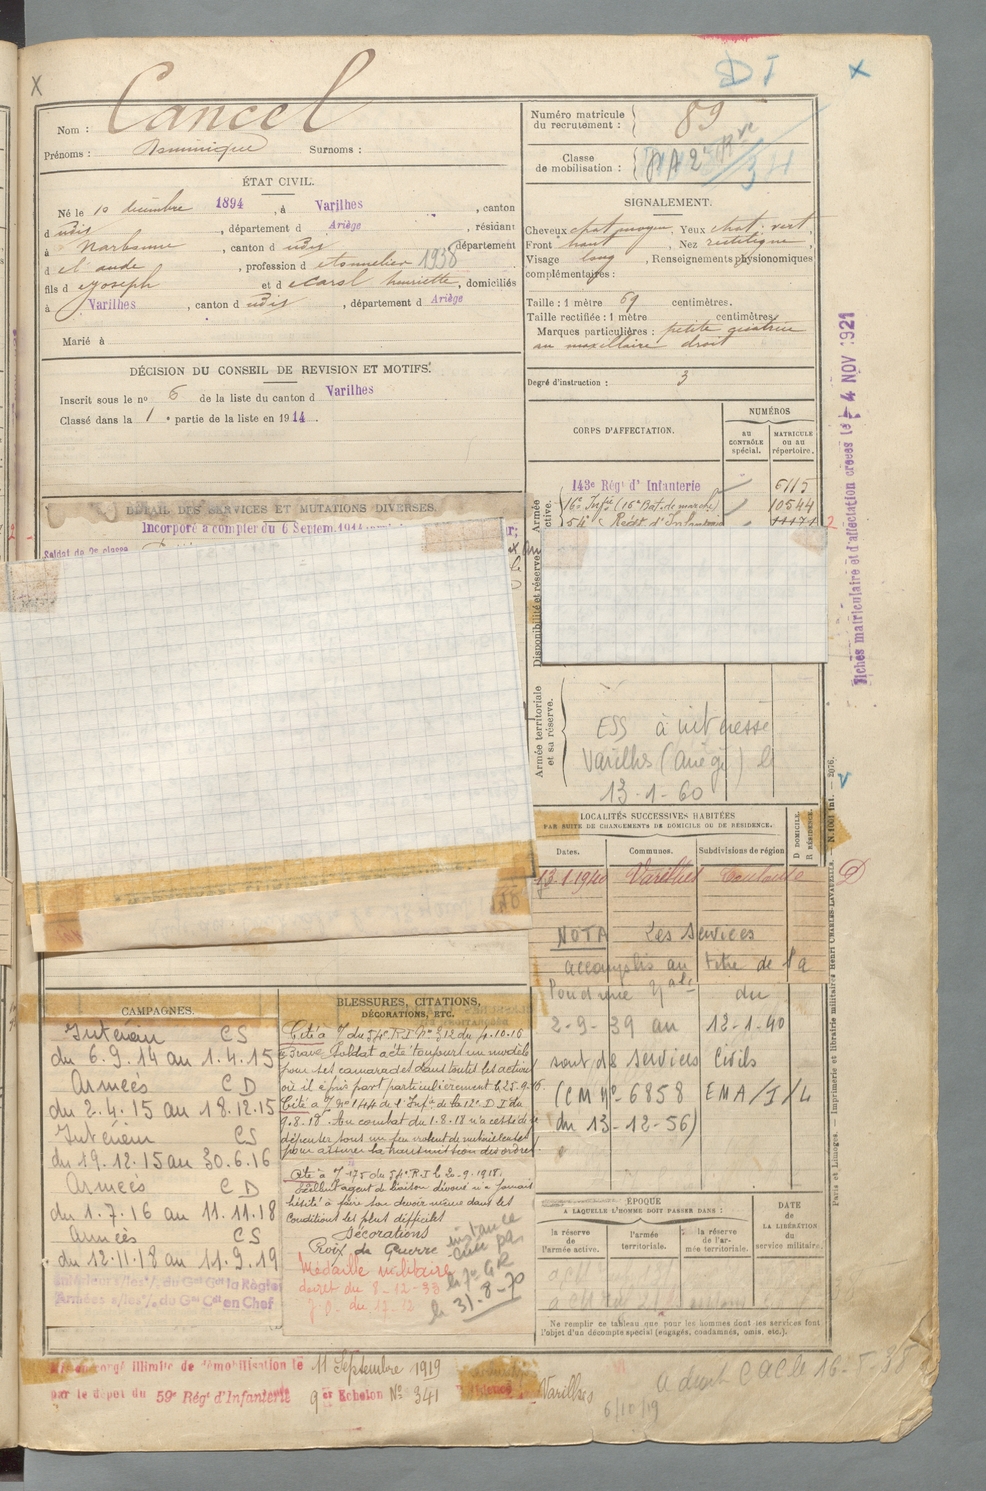 X
DI
X
Nom : Cancel
Prénoms : Dominique Surnoms :
Numéro matricule du recrutement : 89
Classe de mobilisation :
ÉTAT CIVIL.
Né le 10 décembre 1894, à Varilhes, canton
d udit, département d Ariège, résidant
à Narbonne, canton d udit département
d e l'aude, profession d tonnelier 1938
fils d Joseph et d henriette, domiciliés
à Varilhes, canton d udit, département d Ariège
Marié à
SIGNALEMENT.
Cheveux chat. moyen, Yeux chat. vert,
Front haut, Nez rectiligne,
Visage long, Renseignements physionomiques
complémentaires :
Taille : 1 mètre 69 centimètres.
Taille rectifiée : 1 mètre centimètres.
Marques particulières : petite
au maxillaire droit
Degré d'instruction : 3
DÉCISION DU CONSEIL DE REVISION ET MOTIFS.
Inscrit sous le nº 6 de la liste du canton d Varilhes
Classé dans la 1 e partie de la liste en 1914.
CORPS D'AFFECTATION.
NUMÉROS
AU CONTRÔLE spécial.
MATRICULE ou au répertoire.
143e Régt d'Infanterie 6115
16e Infie (16e Bat. de marche) 10544
54e Régt d'Infanterie 11171
DÉTAIL DES SERVICES ET MUTATIONS DIVERSES.
Incorporé à compter du 6 Septem. 1914
Soldat de 2e classe
Armée active.
Disponibilité et réserve
Armée territoriale et sa réserve.
ESS à intéressé
Varilhes (Ariège) le
13-1-60
Fiches matriculaire et d'affectation créées le 4 NOV 1921
LOCALITÉS SUCCESSIVES HABITÉES
PAR SUITE DE CHANGEMENTS DE DOMICILE OU DE RÉSIDENCE.
Dates. Communes. Subdivisions de région D DOMICILE. R RÉSIDENCE.
1 1940 Varilhes Toulouse D
NOTA Les Services
accomplis au titre de la
Poudrerie Nale du
2-9-39 au 12-1-40
sont des services civils
(CM Nº 6858 EMA/I/L
du 13-12-56)
CAMPAGNES.
Intérieur CS
du 6.9.14 au 1.4.15
Armées CD
du 2.4.15 au 18.12.15
Intérieur CS
du 19.12.15 au 30.6.16
Armées CD
du 1.7.16 au 11.11.18
Armées CS
du 12.11.18 au 11.9.19
Intérieur s/les o/. du Gal Gt la Région
Armées s/les o/. du Gal Cdt en Chef
BLESSURES, CITATIONS, DÉCORATIONS, ETC.
Cité à l'o/ du 54e R.I Nº 312 du 4.10.16
Brave Soldat a été toujours un modèle
pour ses camarades dans toutes les actions
où il a pris part particulièrement le 25.9.16
Cité à l'o/ Nº 144 de l'Infie de la 12e D.I du
9.8.18. Au combat du 1.8.18 n'a cessé de se
dépenser sous un feu violent de mitrailleuses
pour assurer la transmission des ordres
Cité à l'o/ 175 du 54e R.I le 20.9.1918.
Excellent agent de liaison dévoué n'a jamais
hésité à faire son devoir même dans les
conditions les plus difficiles
Décorations
Croix de Guerre
Médaille militaire
décret du 8-12-33
J.O. du 17-12
instance
le 31-8-70
ÉPOQUE
A LAQUELLE L'HOMME DOIT PASSER DANS :
la réserve de l'armée active.
l'armée territoriale.
la réserve de l'armée territoriale.
DATE de LA LIBÉRATION du service militaire.
Ne remplir ce tableau que pour les hommes dont les services font
l'objet d'un décompte spécial (engagés, condamnés, omis, etc.).
Paris et Limoges. — Imprimerie et librairie militaires Henri CHARLES-LAVAUZELLE. — N. 1001 int. — 2076.
congé illimité de démobilisation le 11 Septembre 1919
par le dépôt du 59e Régt d'Infanterie 9er Echelon Nº 341 Varilhes
6/10/19
a droit CAC le 16-5-38